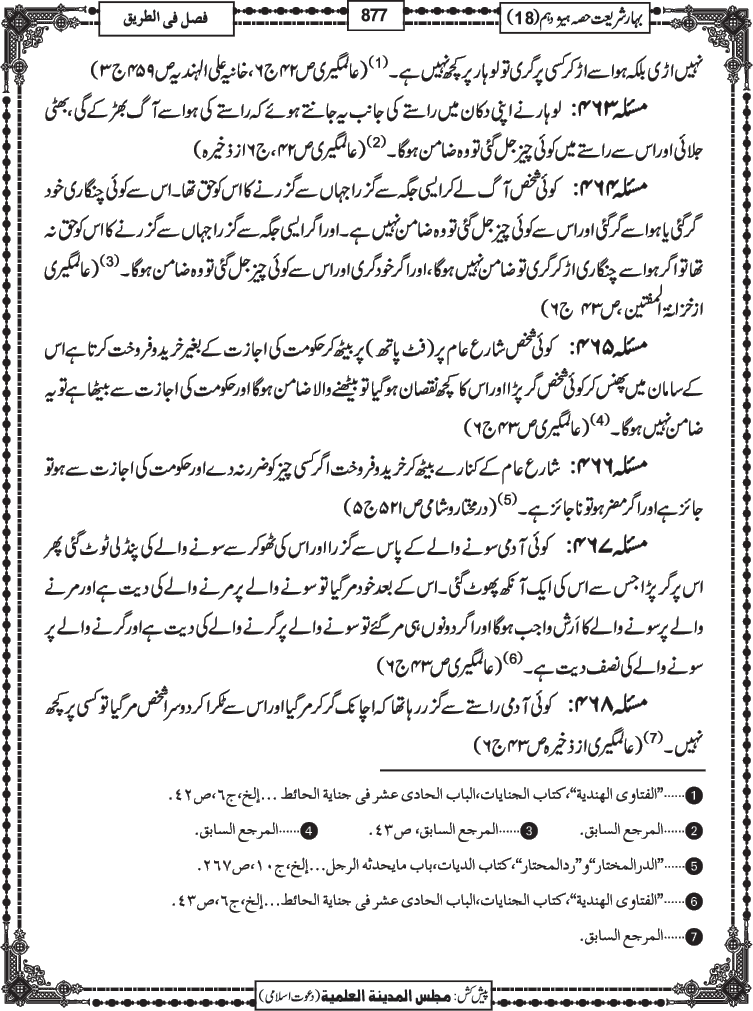 بہار شریعت حصہ ہیژدہم (18)
877
فصل فی الطریق
نہیں اڑی بلکہ ہوا سے اڑ کر کسی پر گری تو لوہار پر کچھ نہیں ہے۔(1) (عالمگیری ص۴۲ ج۶، خانیہ علی الہندیہ ص۴۵۹ ج۳)
مسئلہ ۴۶۳: لوہار نے اپنی دکان میں راستے کی جانب یہ جانتے ہوئے کہ راستے کی ہوا سے آگ بھڑکے گی، بھٹی
جلائی اور اس سے راستے میں کوئی چیز جل گئی تو وہ ضامن ہوگا۔(2) (عالمگیری ص۴۲، ج۶ از ذخیرہ)
مسئلہ ۴۶۴: کوئی شخص آگ لے کر ایسی جگہ سے گزرا جہاں سے گزرنے کا اس کو حق تھا۔ اس سے کوئی چنگاری خود
گر گئی یا ہوا سے گر گئی اور اس سے کوئی چیز جل گئی تو وہ ضامن نہیں ہے۔ اور اگر ایسی جگہ سے گزرا جہاں سے گزرنے کا اس کو حق نہ
تھا تو اگر ہوا سے چنگاری اڑ کر گری تو ضامن نہیں ہوگا، اور اگر خود گری اور اس سے کوئی چیز جل گئی تو وہ ضامن ہوگا۔(3) (عالمگیری
از خزانۃ المفتین، ص۴۳ ج۶)
مسئلہ ۴۶۵: کوئی شخص شارع عام پر (فٹ پاتھ) پر بیٹھ کر حکومت کی اجازت کے بغیر خرید و فروخت کرتا ہے اس
کے سامان میں پھنس کر کوئی شخص گر پڑا اور اس کا کچھ نقصان ہوگیا تو بیٹھنے والا ضامن ہوگا اور حکومت کی اجازت سے بیٹھا ہے تو یہ
ضامن نہیں ہوگا۔(4) (عالمگیری ص۴۳ ج۶)
مسئلہ ۴۶۶: شارع عام کے کنارے بیٹھ کر خرید و فروخت اگر کسی چیز کو ضرر نہ دے اور حکومت کی اجازت سے ہو تو
جائز ہے اور اگر مضر ہو تو ناجائز ہے۔(5) (درمختار و شامی ص۵۲۱ ج۵)
مسئلہ ۴۶۷: کوئی آدمی سونے والے کے پاس سے گزرا اور اس کی ٹھوکر سے سونے والے کی پنڈلی ٹوٹ گئی پھر
اس پر گر پڑا جس سے اس کی ایک آنکھ پھوٹ گئی۔ اس کے بعد خود مر گیا تو سونے والے پر مرنے والے کی دیت ہے اور مرنے
والے پر سونے والے کا اَرْش واجب ہوگا اور اگر دونوں ہی مر گئے تو سونے والے پر گرنے والے کی دیت ہے اور گرنے والے پر
سونے والے کی نصف دیت ہے۔(6) (عالمگیری ص۴۳ ج۶)
مسئلہ ۴۶۸: کوئی آدمی راستے سے گزر رہا تھا کہ اچانک گر کر مر گیا اور اس سے ٹکرا کر دوسرا شخص مر گیا تو کسی پر کچھ
نہیں۔(7) (عالمگیری از ذخیرہ ص۴۳ ج۶)
1......"الفتاوی الھندیۃ"، کتاب الجنایات، الباب الحادی عشر فی جنایۃ الحائط ...إلخ، ج۶، ص۴۲.
2......المرجع السابق. 3......المرجع السابق، ص۴۳. 4......المرجع السابق.
5......"الدرالمختار" و"ردالمحتار"، کتاب الدیات، باب مایحدثہ الرجل...إلخ، ج۱۰، ص۲۶۷.
6......"الفتاوی الھندیۃ"، کتاب الجنایات، الباب الحادی عشر فی جنایۃ الحائط...إلخ، ج۶، ص۴۳.
7......المرجع السابق.
پیش کش: مجلس المدینۃ العلمیۃ (دعوت اسلامی)